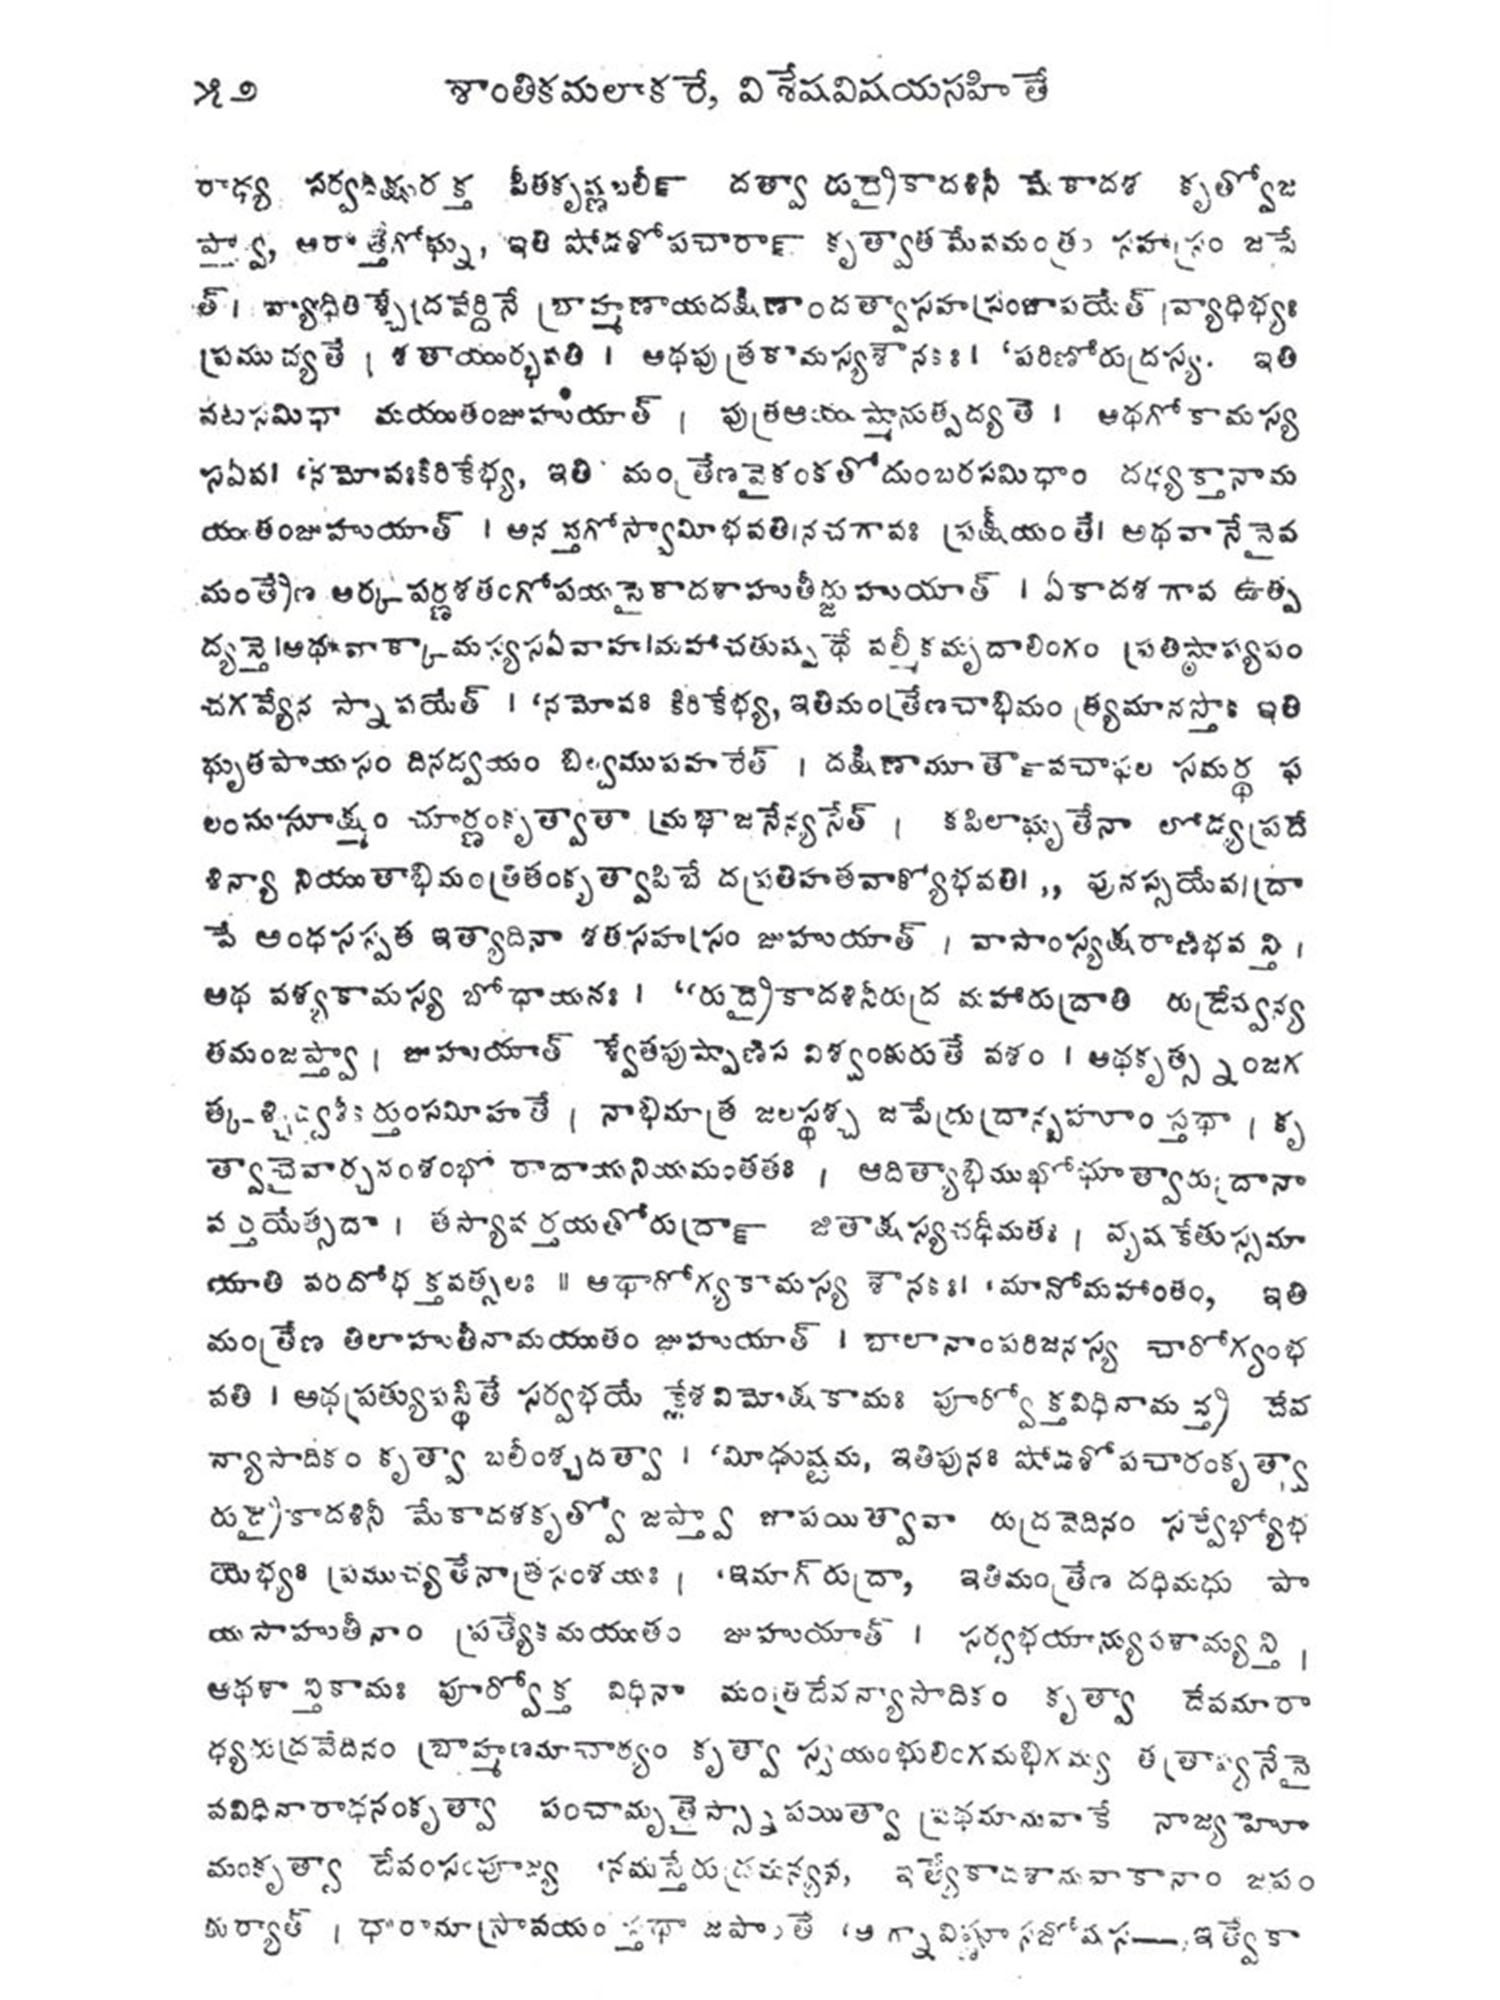 ౫౨ శాంతికమలాకరే, విశేషవిషయసహితే
రాధ్య సర్వదిక్షురక్త పీతకృష్ణబలీ౯ దత్వా రుద్రైకాదశినీ మేకాదశ కృత్వోజ
ప్త్వా, ఆరాత్తేగోఘ్ను, ఇతి షోడశోపచారా౯ కృత్వాత మేవమంత్రం సహస్రం జపే
త్। వ్యాధితశ్చేద్రవేర్దినే బ్రాహ్మణాయదక్షిణాందత్వాసహస్రంజాపయేత్ ।వ్యాధిభ్యః
ప్రముచ్యతే । శతాయుర్భవతి । అథపుత్రకామస్యశౌనకః। ‘పరిణోరుద్రస్య. ఇతి
వటసమిధా మయుతంజుహుయాత్ । పుత్రఆయుష్మానుత్పద్యతే । అథగోకామస్య
సఏవ। ‘నమోవఃకిరికేభ్య, ఇతి మంత్రేణవైకంకతోదుంబరసమిధాం దధ్యక్తానామ
యుతంజుహుయాత్ । అనన్తగోస్వామీభవతి।నచగావః ప్రక్షీయంతే। అథవానేనైవ
మంత్రేణ అర్కపర్ణశతంగోపయసైకాదశాహుతీర్జుహుయాత్ । ఏకాదశగావ ఉత్ప
ద్యన్తే।అథవాక్కామస్యసఏవాహ।మహాచతుష్పథే వల్మీకమృదాలింగం ప్రతిష్ఠాప్యపం
చగవ్యేన స్నాపయేత్ । ‘నమోవః కిరికేభ్య, ఇతిమంత్రేణచాభిమంత్ర్యమానస్తోక ఇతి
ఘృతపాయసం దినద్వయం బిల్వముపహరేత్ । దక్షిణామూర్తావచాఫల సమర్థ ఫ
లంసుసూక్ష్మం చూర్ణంకృత్వాతామ్రభాజనేన్యసేత్ । కపిలాఘృతేనా లోడ్యప్రదే
శిన్యా నియుతాభిమంత్రితంకృత్వాపిబే దప్రతిహతవాక్యోభవతి।,, పునస్సయేవ।ద్రా
పే అంధసస్పత ఇత్యాదినా శతసహస్రం జుహుయాత్ । వాసాంస్యక్షరాణిభవన్తి ।
అథ వశ్యకామస్య బోధాయనః । “రుద్రైకాదశినీరుద్ర మహారుద్రాతి రుద్రేష్వన్య
తమంజప్త్వా । జుహుయాత్ శ్వేతపుష్పాణిస విశ్వంకురుతే వశం । అథకృత్స్నంజగ
త్కశ్చిద్వశీకర్తుంసమీహతే । నాభిమాత్ర జలస్థశ్చ జపేద్రుద్రాన్బహూం స్తథా । కృ
త్వాచైవార్చనంశంభో రాదాయనియమంతతః । ఆదిత్యాభిముఖోభూత్వారుద్రానా
వర్తయేత్సదా । తస్యావర్తయతోరుద్రా౯ జితాక్షస్యచధీమతః । వృషకేతుస్సమా
యాతి వరదోభక్తవత్సలః ॥ అథారోగ్యకామస్య శౌనకః। ‘మానోమహాంతం, ఇతి
మంత్రేణ తిలాహుతీనామయుతం జుహుయాత్ । బాలానాంపరిజనస్య చారోగ్యంభ
వతి । అథప్రత్యుపస్థితే సర్వభయే క్లేశవిమోక్షకామః పూర్వోక్తవిధినామన్త్రి దేవ
న్యాసాదికం కృత్వా బలీంశ్చదత్వా । ‘మీఢుష్టమ, ఇతిపునః షోడశోపచారంకృత్వా
రుద్రైకాదశినీ మేకాదశకృత్వో జప్త్వా జాపయిత్వావా రుద్రవేదినం సర్వేభ్యోభ
యేభ్యః ప్రముచ్యతేనాత్రసంశయః । ‘ఇమాగ్‌రుద్రా, ఇతిమంత్రేణ దధిమధు పా
యసాహుతీనాం ప్రత్యేకమయుతం జుహుయాత్ । సర్వభయాన్యుపశామ్యన్తి ।
అథశాన్తికామః పూర్వోక్త విధినా మంత్రిదేవన్యాసాదికం కృత్వా దేవమారా
ధ్యరుద్రవేదినం బ్రాహ్మణమాచార్యం కృత్వా స్వయంభులింగమభిగమ్య తత్రాప్యనేనై
వవిధినారాధనంకృత్వా పంచామృతైస్స్నాపయిత్వా ప్రథమానువాకే నాజ్యహో
మంకృత్వా దేవంసంపూజ్య ‘నమస్తేరుద్రమన్యవ, ఇత్యేకాదశానువాకానాం జపం
కుర్యాత్ । ధారానాస్రావయం స్తథా జపాంతే ‘అగ్నావిష్ణూసజోషస—, ఇత్యేకా